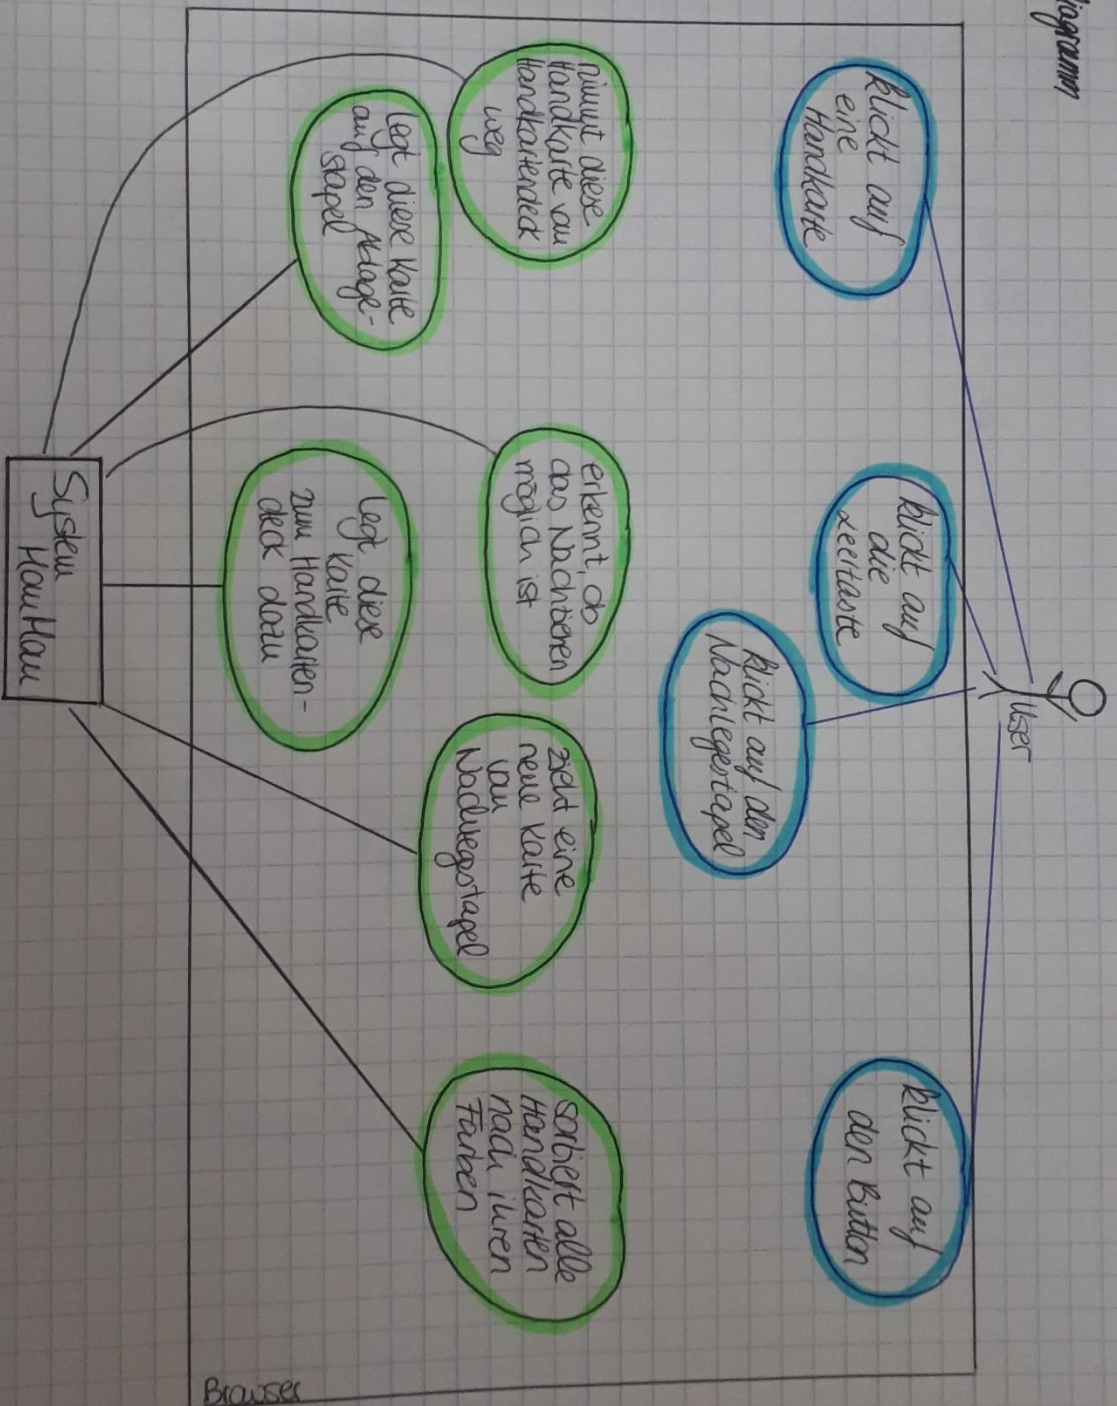 diagramm
User
klickt auf
eine
Handkarte
klickt auf
die
Leertaste
klickt auf den
Nachlegestapel
klickt auf
den Button
nimmt diese
Handkarte von
Handkartendeck
weg
legt diese Karte
auf den Ablage-
stapel
erkennt, ob
das Nachziehen
möglich ist
legt diese
Karte
zum Handkarten-
deck dazu
zieht eine
neue Karte
von
Nachlegestapel
sortiert alle
Handkarten
nach ihren
Farben
System
MauMau
Browser